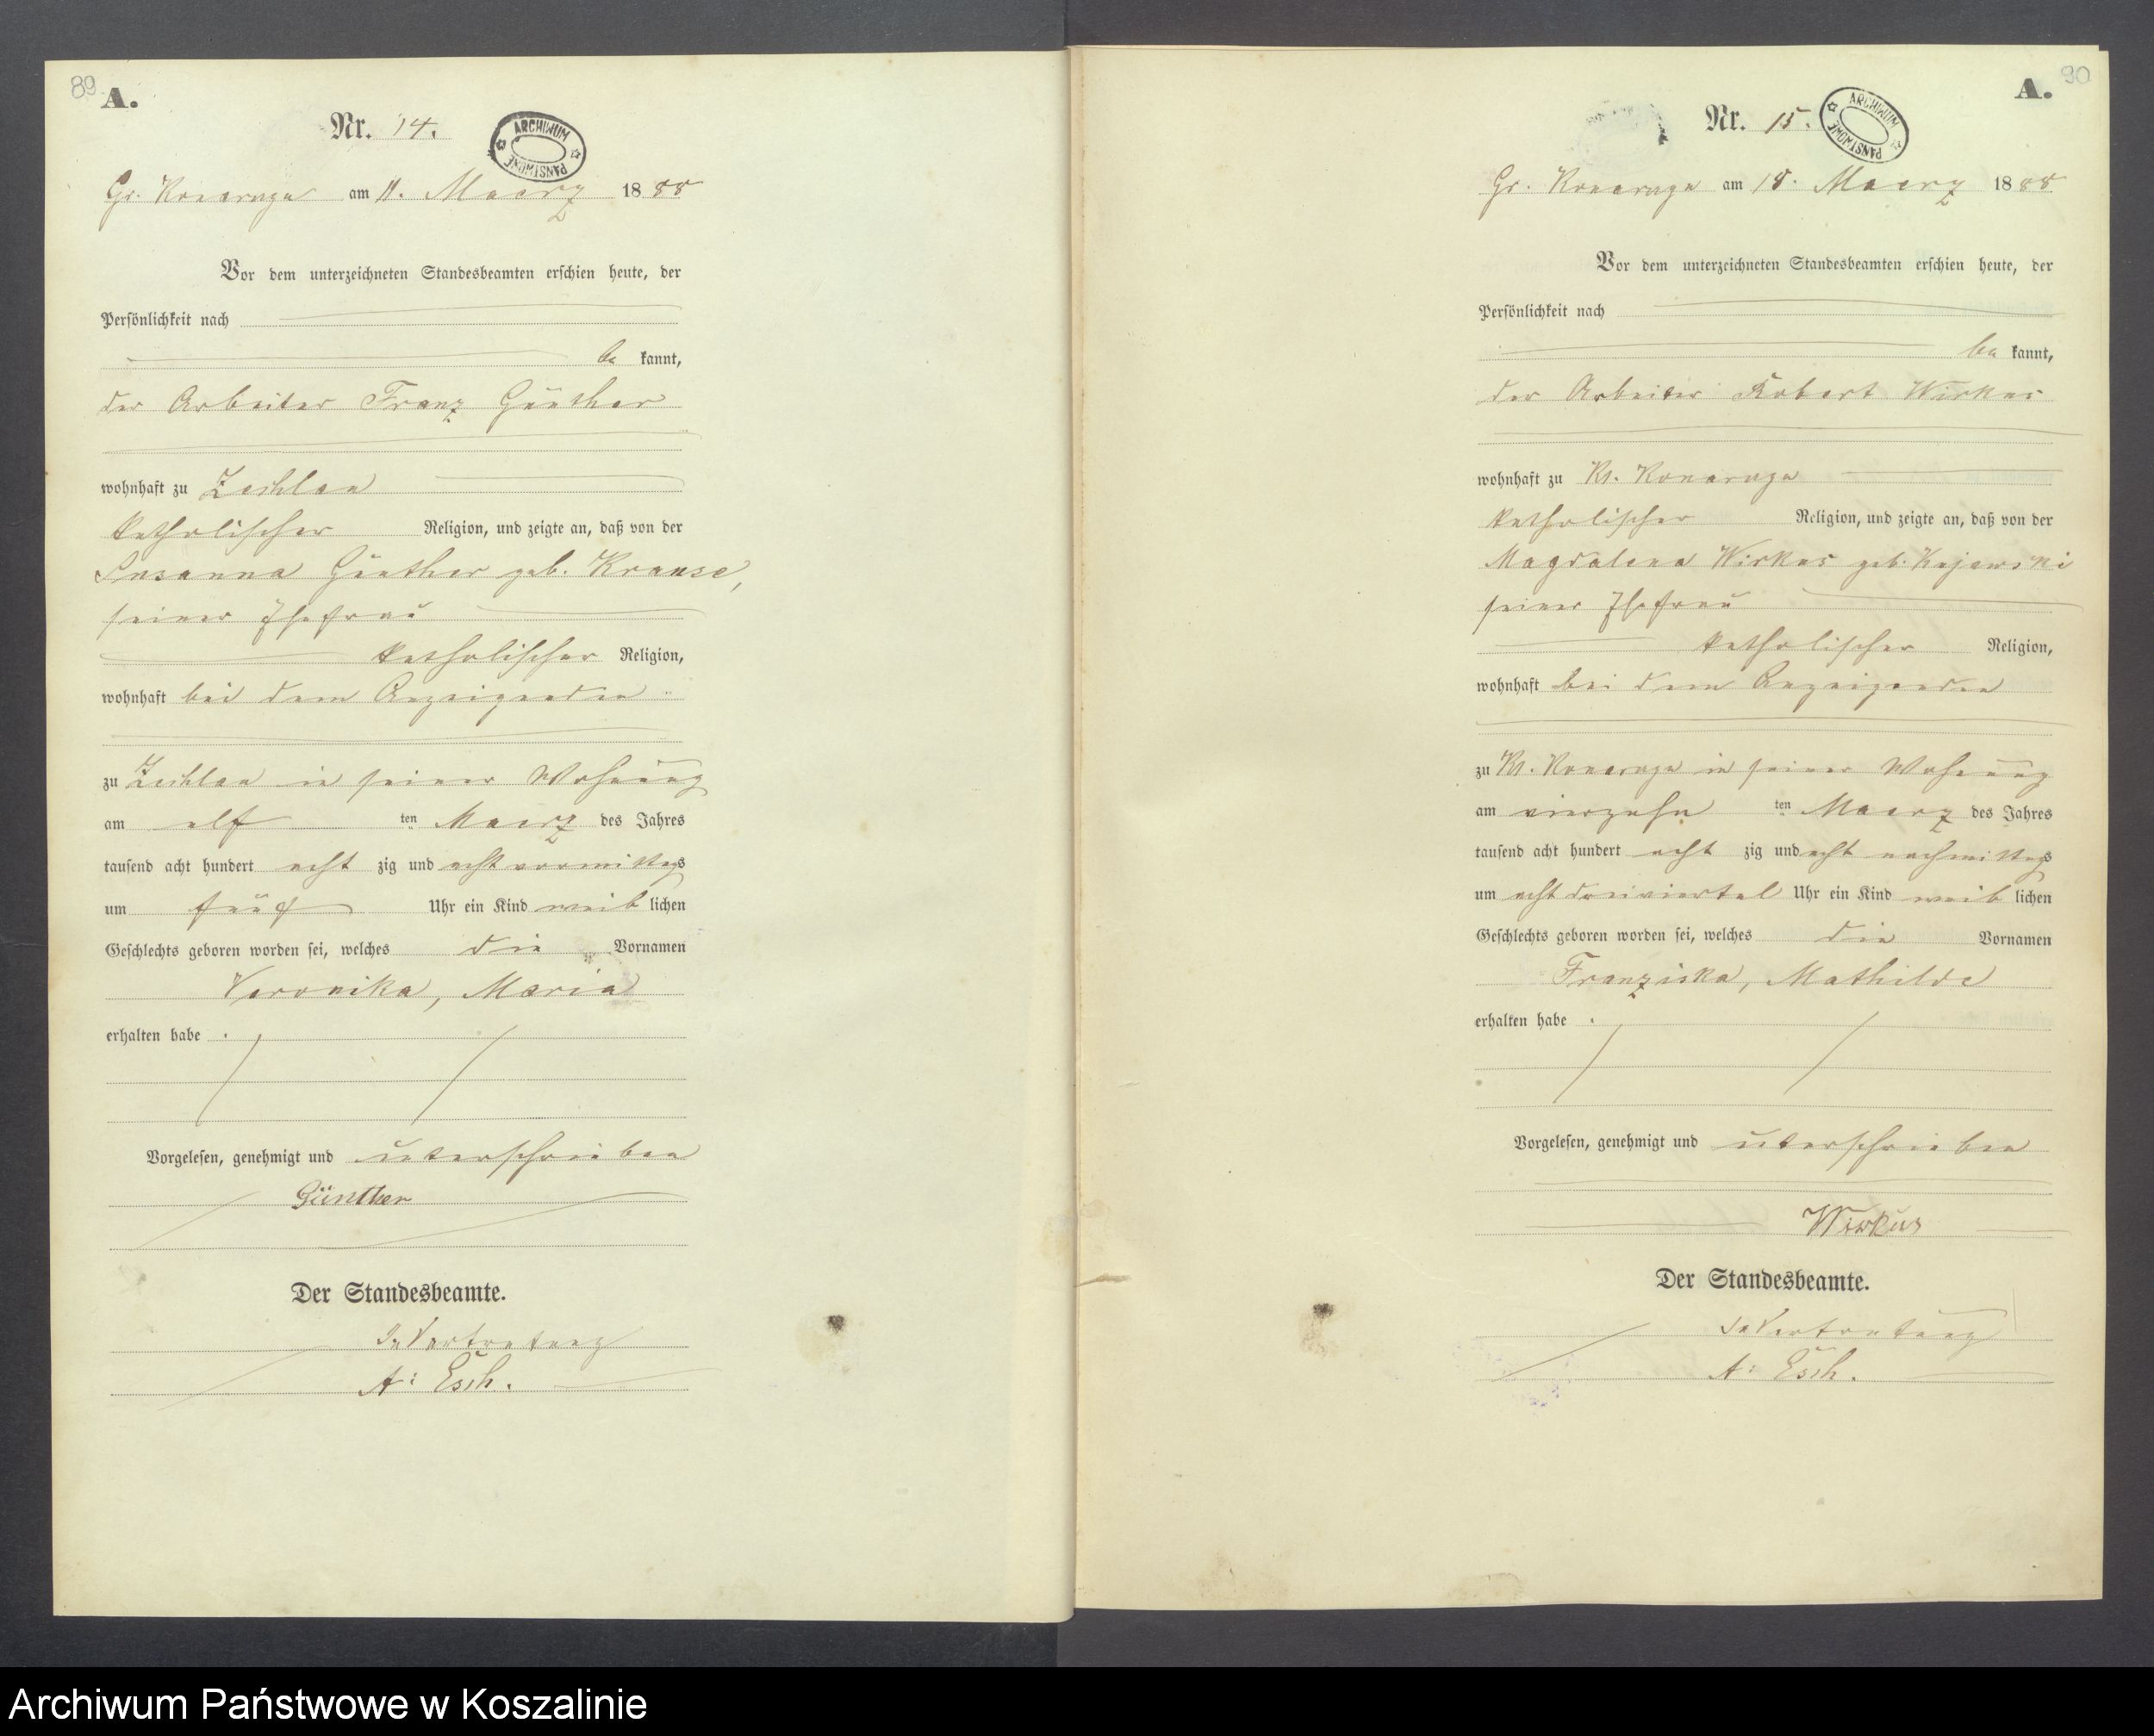 89
A.
Nr. 14.
ARCHIWUM PAŃSTWOWE
Gr. Konarczyn am 11. Maerz 1888
Vor dem unterzeichneten Standesbeamten erschien heute, der
Persönlichkeit nach
be kannt,
der Arbeiter Franz Günther
wohnhaft zu Zechlau
katholischer Religion, und zeigte an, daß von der
Susanna Günther geb. Krause,
seiner Ehefrau
katholischer Religion,
wohnhaft bei dem Anzeigenden
zu Zechlau in seiner Wohnung
am elf ten Maerz des Jahres
tausend acht hundert acht zig und acht vormittags
um fünf Uhr ein Kind weib lichen
Geschlechts geboren worden sei, welches die Vornamen
Veronika, Maria
erhalten habe .
Vorgelesen, genehmigt und unterschrieben
Günther
Der Standesbeamte.
In Vertretung
A: Esch.
90
A.
Nr. 15.
ARCHIWUM PAŃSTWOWE
Gr. am 18. Maerz 1888
Vor dem unterzeichneten Standesbeamten erschien heute, der
Persönlichkeit nach
be kannt,
der Arbeiter Robert Wirkus
wohnhaft zu Kl.
katholischer Religion, und zeigte an, daß von der
Magdalena Wirkus geb. Kujawski
seiner Ehefrau
katholischer Religion,
wohnhaft bei dem Anzeigenden
zu Kl. in seiner Wohnung
am vierzehn ten Maerz des Jahres
tausend acht hundert acht zig und acht nachmittags
um acht dreiviertel Uhr ein Kind weib lichen
Geschlechts geboren worden sei, welches die Vornamen
Franziska, Mathilde
erhalten habe .
Vorgelesen, genehmigt und unterschrieben
Wirkus
Der Standesbeamte.
In Vertretung
A: Esch.
Archiwum Państwowe w Koszalinie